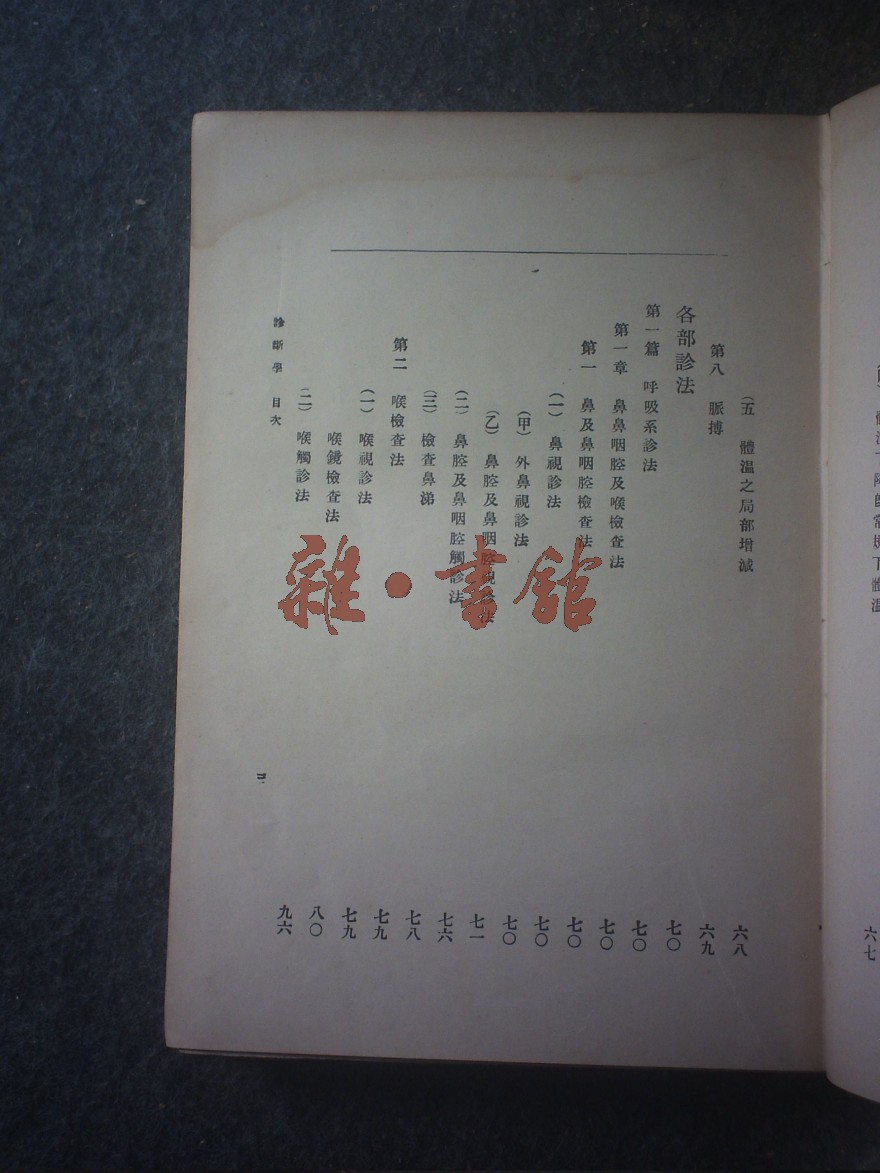 六七
(五) 體溫之局部增減 六八
第八 脈搏 六九
各部診法 七〇
第一篇 呼吸系診法 七〇
第一章 鼻鼻咽腔及喉檢查法 七〇
第一 鼻及鼻咽腔檢查法 七〇
(一) 鼻視診法 七〇
(甲) 外鼻視診法 七〇
(乙) 鼻腔及鼻咽腔視診法 七一
(二) 鼻腔及鼻咽腔觸診法 七六
(三) 檢查鼻涕 七八
第二 喉檢查法 七九
(一) 喉視診法 七九
喉鏡檢查法 八〇
(二) 喉觸診法 九六
診斷學 目次
雜·書館